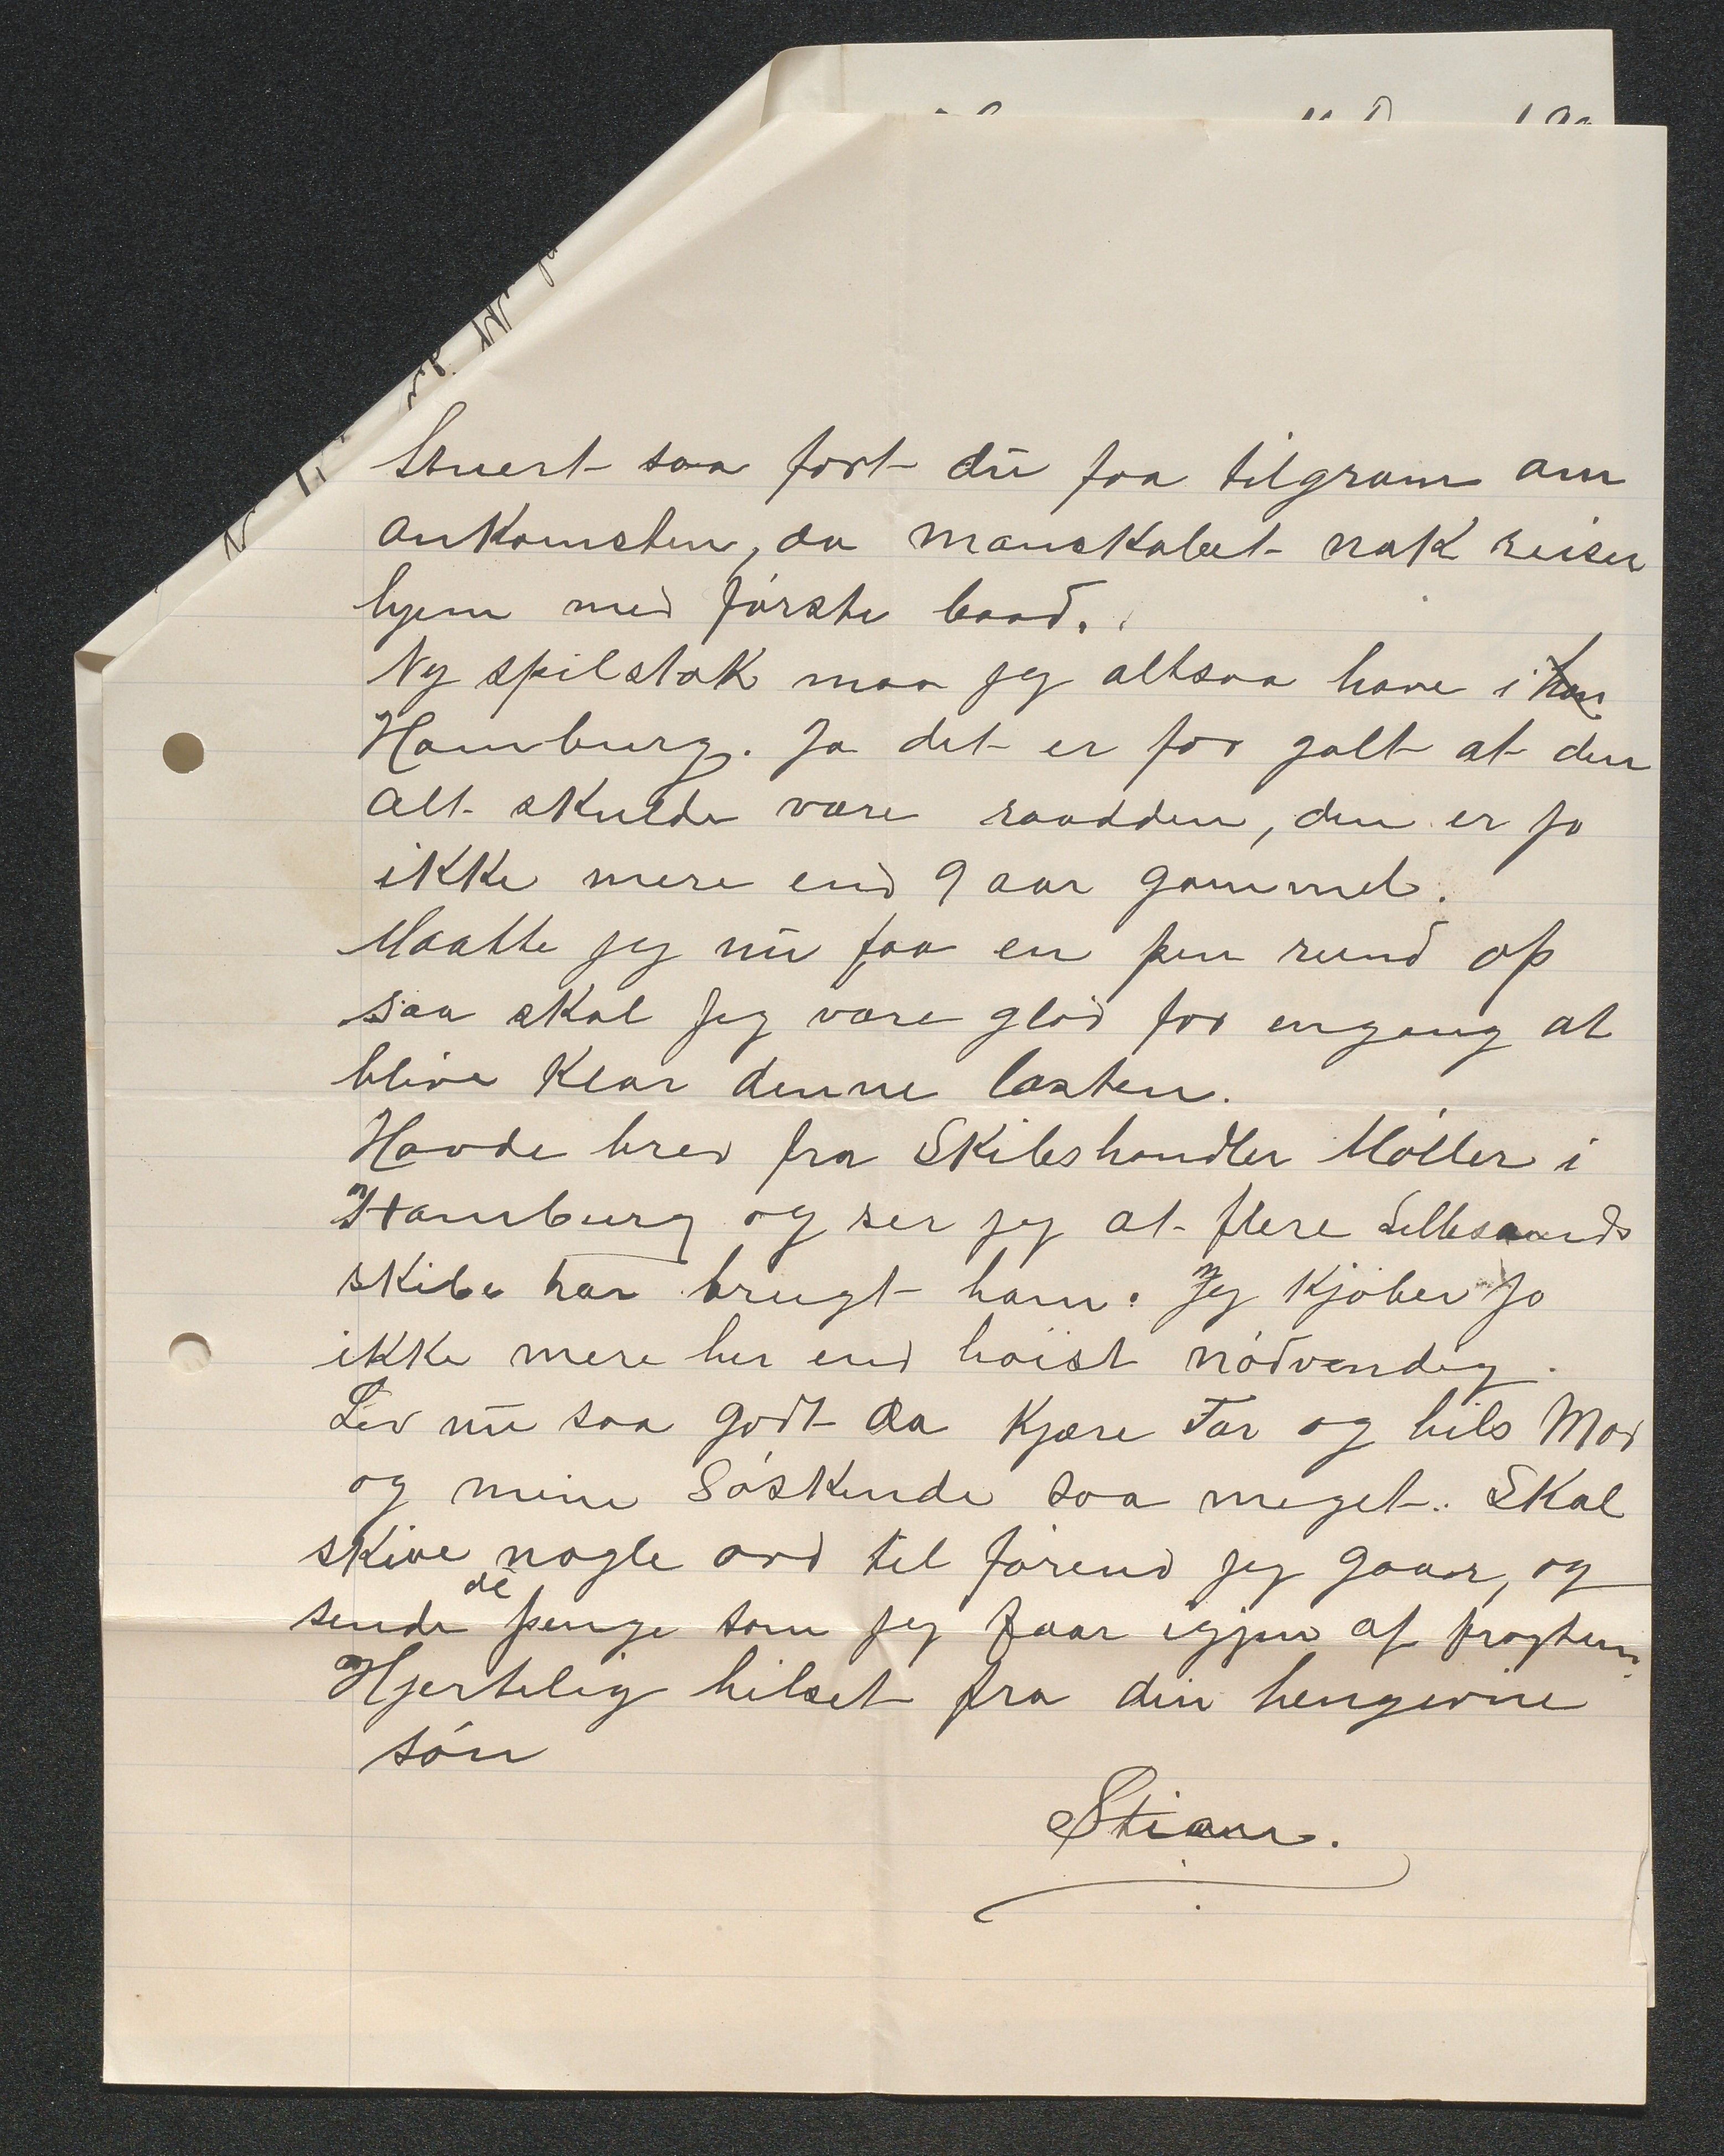 Snuert saa fort du faa tilgram om
ankomsten, da manskabet nok reiser
hjem med første baad.
Ny spilstok maa jeg altsaa have i
Hamburg. Ja det er for galt at den
alt skulde være raadden, den er jo
ikke mere end 9 aar gammel.
Maatte jeg nu faa en pen rund op
saa skal jeg være glad for engang at
blive klar denne lasten.
Havde brev fra Skibshandler Møller i
Hamburg og ser jeg at flere Lillesands
skibe har brugt ham. Jeg kjøber jo
ikke mere her end høist nødvendig.
Lev nu saa godt da kjære Far og hils Mor
og mine Søskende saa meget. Skal
skive nogle ord til førend jeg gaar, og
sende de penge som jeg faar igjen af fragten.
Hjertelig hilset fra din hengivne
søn
Stian.